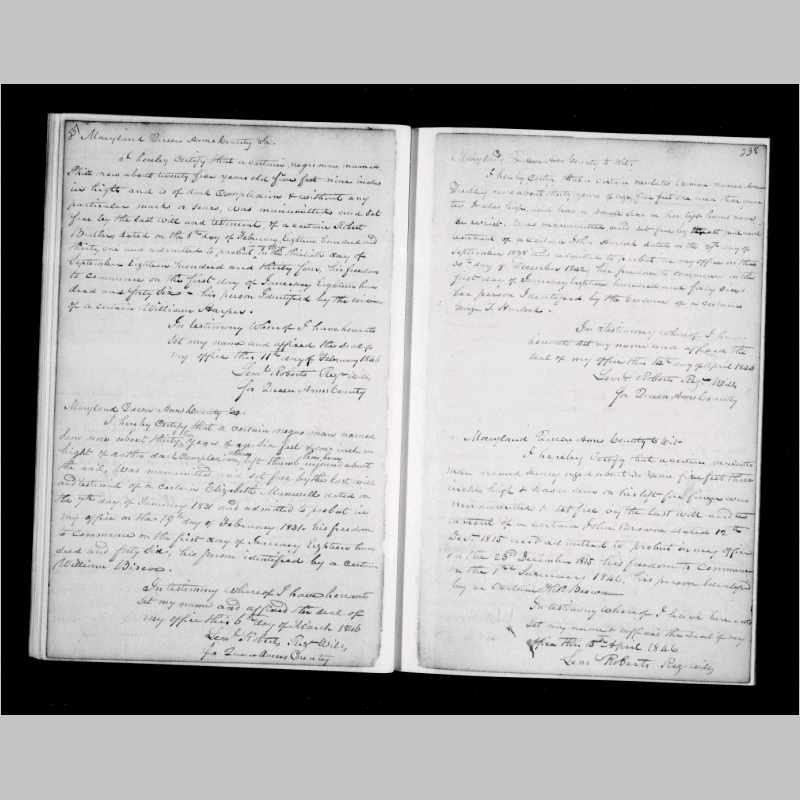 237
Maryland Queen Anns County Sc.
I hereby certify that a certain negro man named
Phil now about twenty five years old five feet nine inches
in hight and is of dark Complexion & without any
particular marks or scars, was manumitted and set
free by the last will and testiment, of a certain Robert
Butler dated on the 8th day of February Eighteen hundred and
thirty one and admitted to probat on the day of
September Eighteen hundred and thirty four, his freedom
to commence on the first day of January Eighteen hun
dred and forty Six - his person Identified by the evidence
of a certain William Harper.
In testimony Whereof I have hereunto
set my name and affixed the seal of
my office this 11th day of February 1846
Leml. Roberts Regr. Wills
for Queen Anns County
Maryland Queen Anns County Sc.
I hereby Certify that a certain negro man named
now about thirty years of age Six feet in
hight of a dark Complexion, left thumb injured about
the nail, Was manumitted and set free by the last will
and testament of a certain Elizabeth dated on
the 9th day of January 1831 and admitted to probat in
my office on the 19th day of February 1831. his freedom
to Commence on the first day of January Eighteen hun
dred and forty Six, his person identified by a certain
William
In testimony whereof I have hereunto
set my name and affixed the seal of
my office this 6th day of March 1846
Leml. Roberts Regr. Wills
for Queen Anns County
238
Maryland Queen Anns County to Wit.
I hereby Certify that a certain mulatto woman named
now about thirty years of age five feet one and three quar
ter Inches high and has a small scar on her left hand near
the wrist. Was manumitted and set free by the will and
testament of a certain John dated on the day of
September 1838 and admitted to probat in my office on the
day of December 1842, her freedom to commence on the
first day of January Eighteen hundred and forty Six
her person Identifyed by the evidence of a certain
In testimony whereof I have
hereunto set my name and affixed the
seal of my office this day of April 1846
Leml. Roberts Regr. Wills
for Queen Anns County
Maryland Queen Anns County to Wit
I hereby Certify that a certain mulatto
man named Henry aged about years five feet three
inches high & has a scar on his left fore finger was
manumitted & set free by the last Will and test
ament of a certain John Brown dated 12th
Decr. 1815 and admitted to probat in my office
on the 23d December 1815 his freedom to Commence
on the 1st January 1846, his person Identifyed
by a certain Brown
In testimony whereof I have hereunto
set my name & affixed the seal of my
office this 15th April 1846
Leml Roberts Reg Wills